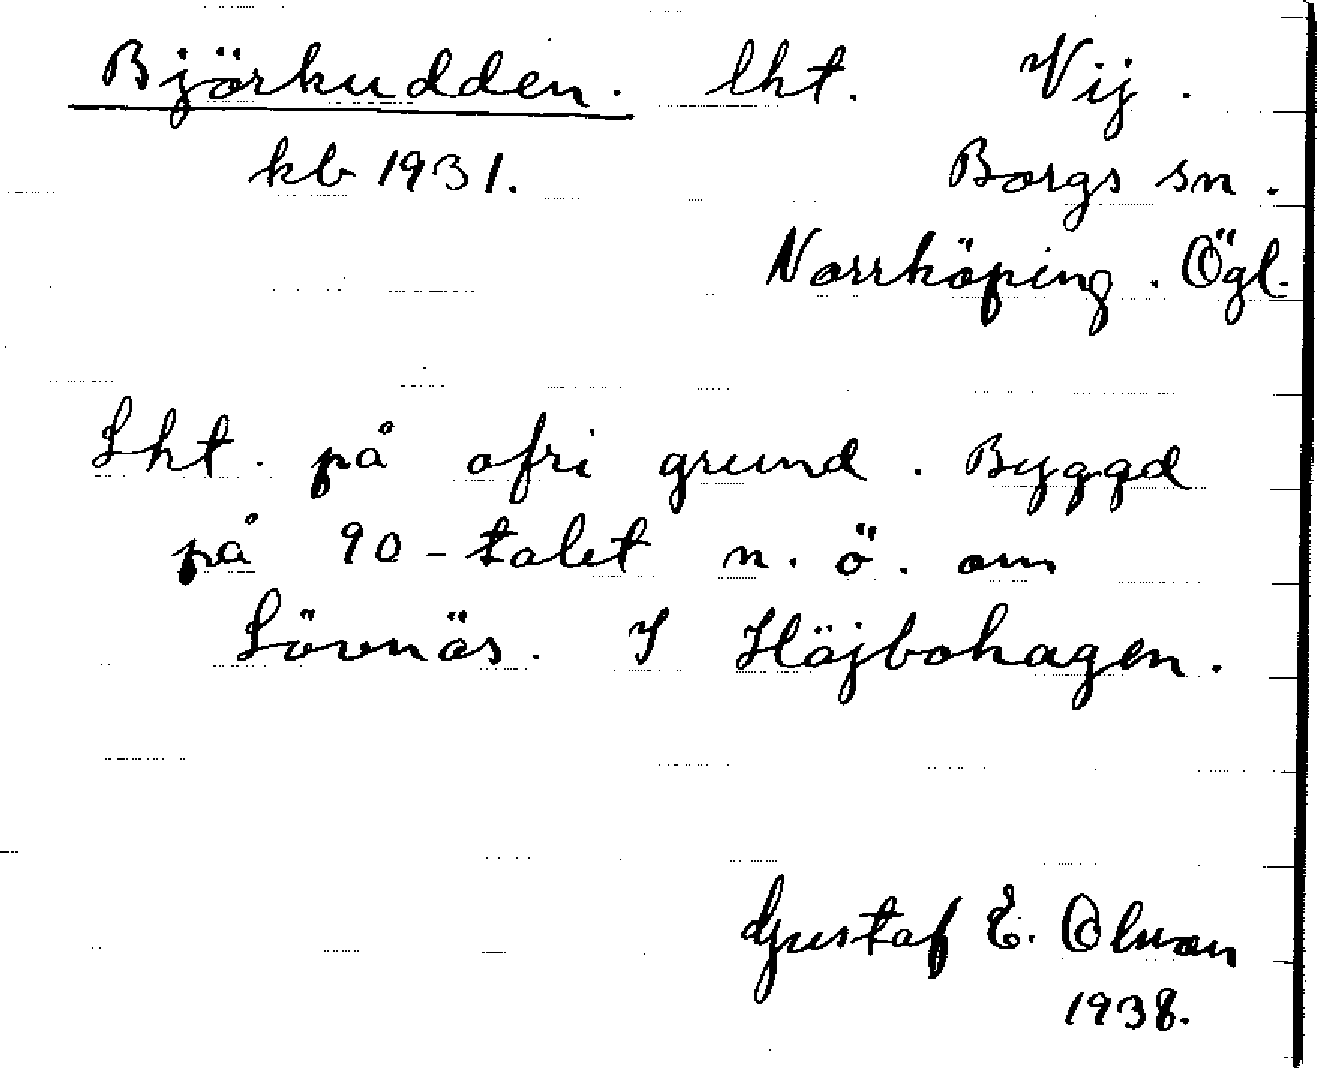 Björkudden. lht. Vij.
kb 1931. Borgs sn.
Norrköping. Ögl.
Lht. på ofri grund. Byggd
på 90-talet n.ö. om
Lövnäs. I Höjbohagen.
Gustaf E. Olson
1938.